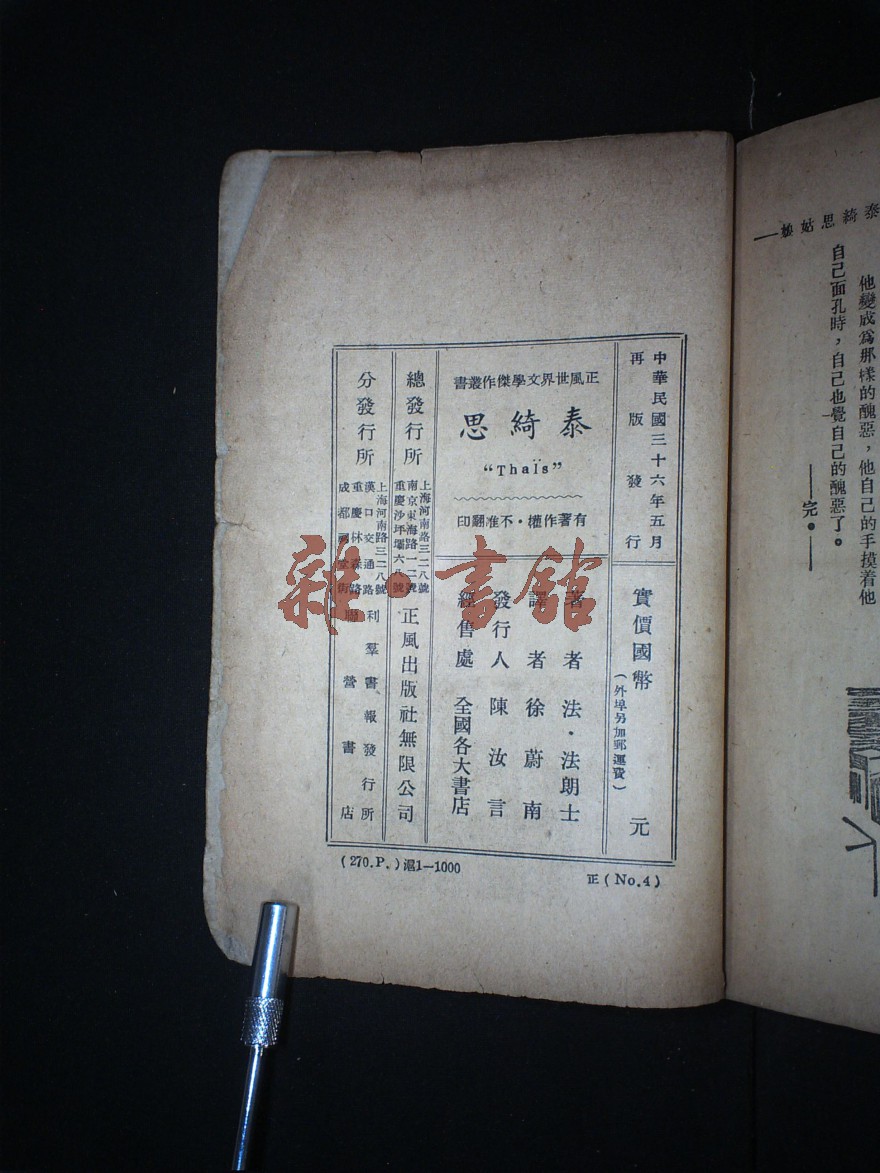 泰綺思姑娘——
他變成爲那樣的醜惡，他自己的手摸着他
自己面孔時，自己也覺自己的醜惡了。
——完。——
中華民國三十六年五月
再版發行
實價國幣 元
（外埠另加郵運費）
正風世界文學傑作叢書
泰綺思
"Thaïs"
有著作權·不准翻印
著者 法·法朗士
譯者 徐蔚南
發行人 陳汝言
經售處 全國各大書店
總發行所
上海河南路三二八號
南京東海路一二號
重慶沙坪壩六八號
正風出版社無限公司
分發行所
上海河南路三二八號
漢口交通路
重慶林森路
成都祠堂街
利羣書報發行所
聯營書店
(270.P.)滬1—1000
正(No.4)
雜·書館